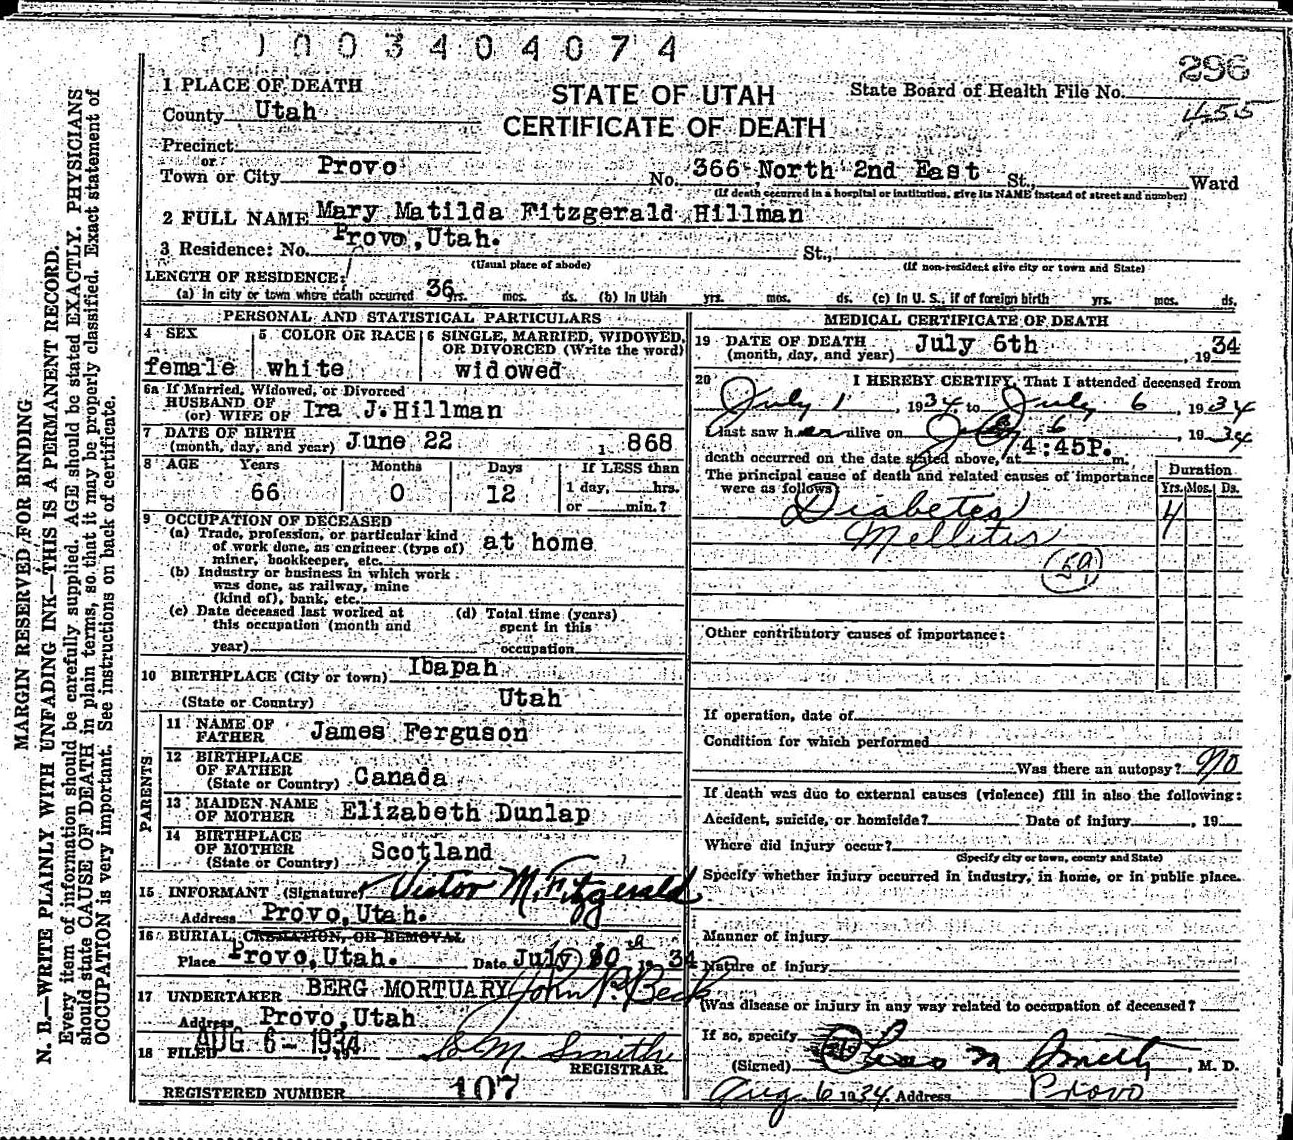 1003404074
296
1 PLACE OF DEATH
STATE OF UTAH
State Board of Health File No.
County Utah
455
CERTIFICATE OF DEATH
Precinct
or
Town or City Provo No. 366 North 2nd East St., Ward
(If death occurred in a hospital or institution, give its NAME instead of street and number)
2 FULL NAME Mary Matilda Fitzgerald Hillman
3 Residence: No. Provo, Utah. St.,
(Usual place of abode) (If non-resident give city or town and State)
LENGTH OF RESIDENCE:
(a) In city or town where death occurred 36 yrs. mos. ds. (b) In Utah yrs. mos. ds. (c) In U. S., if of foreign birth yrs. mos. ds.
PERSONAL AND STATISTICAL PARTICULARS
4 SEX 5 COLOR OR RACE 6 SINGLE, MARRIED, WIDOWED, OR DIVORCED (Write the word)
female white widowed
6a If Married, Widowed, or Divorced
HUSBAND OF
(or) WIFE OF Ira J. Hillman
7 DATE OF BIRTH
(month, day, and year) June 22 1 868
8 AGE Years Months Days If LESS than
66 0 12 1 day, hrs.
or min.?
9 OCCUPATION OF DECEASED
(a) Trade, profession, or particular kind
of work done, as engineer (type of) at home
miner, bookkeeper, etc.
(b) Industry or business in which work
was done, as railway, mine
(kind of), bank, etc.
(c) Date deceased last worked at (d) Total time (years)
this occupation (month and spent in this
year) occupation
10 BIRTHPLACE (City or town) Ibapah
(State or Country) Utah
PARENTS
11 NAME OF
FATHER James Ferguson
12 BIRTHPLACE
OF FATHER
(State or Country) Canada
13 MAIDEN NAME
OF MOTHER Elizabeth Dunlap
14 BIRTHPLACE
OF MOTHER
(State or Country) Scotland
15 INFORMANT (Signature) Victor M. Fitzgerald
Address Provo, Utah.
16 BURIAL, CREMATION, OR REMOVAL
Place Provo, Utah. Date July 10th 19 34
17 UNDERTAKER BERG MORTUARY John P. Beck
Address Provo, Utah
18 FILED AUG 6 - 1934
REGISTRAR.
REGISTERED NUMBER 107
MEDICAL CERTIFICATE OF DEATH
19 DATE OF DEATH
(month, day, and year) July 6th , 19 34
20 I HEREBY CERTIFY, That I attended deceased from
July 1 , 1934, to July 6 , 1934
I last saw her alive on July 6 , 1934
death occurred on the date stated above, at 4:45P. m.
The principal cause of death and related causes of importance
were as follows:
Duration
Yrs. Mos. Ds.
Diabetes 4
Mellitus
59
Other contributory causes of importance:
If operation, date of
Condition for which performed
Was there an autopsy? No
If death was due to external causes (violence) fill in also the following:
Accident, suicide, or homicide? Date of injury , 19
Where did injury occur?
(Specify city or town, county and State)
Specify whether injury occurred in industry, in home, or in public place.
Manner of injury
Nature of injury
Was disease or injury in any way related to occupation of deceased?
If so, specify
(Signed) M Smith , M. D.
Aug. 6 1934. Address Provo
MARGIN RESERVED FOR BINDING
N. B.—WRITE PLAINLY WITH UNFADING INK—THIS IS A PERMANENT RECORD.
Every item of information should be carefully supplied. AGE should be stated EXACTLY. PHYSICIANS
should state CAUSE OF DEATH in plain terms, so that it may be properly classified. Exact statement of
OCCUPATION is very important. See instructions on back of certificate.